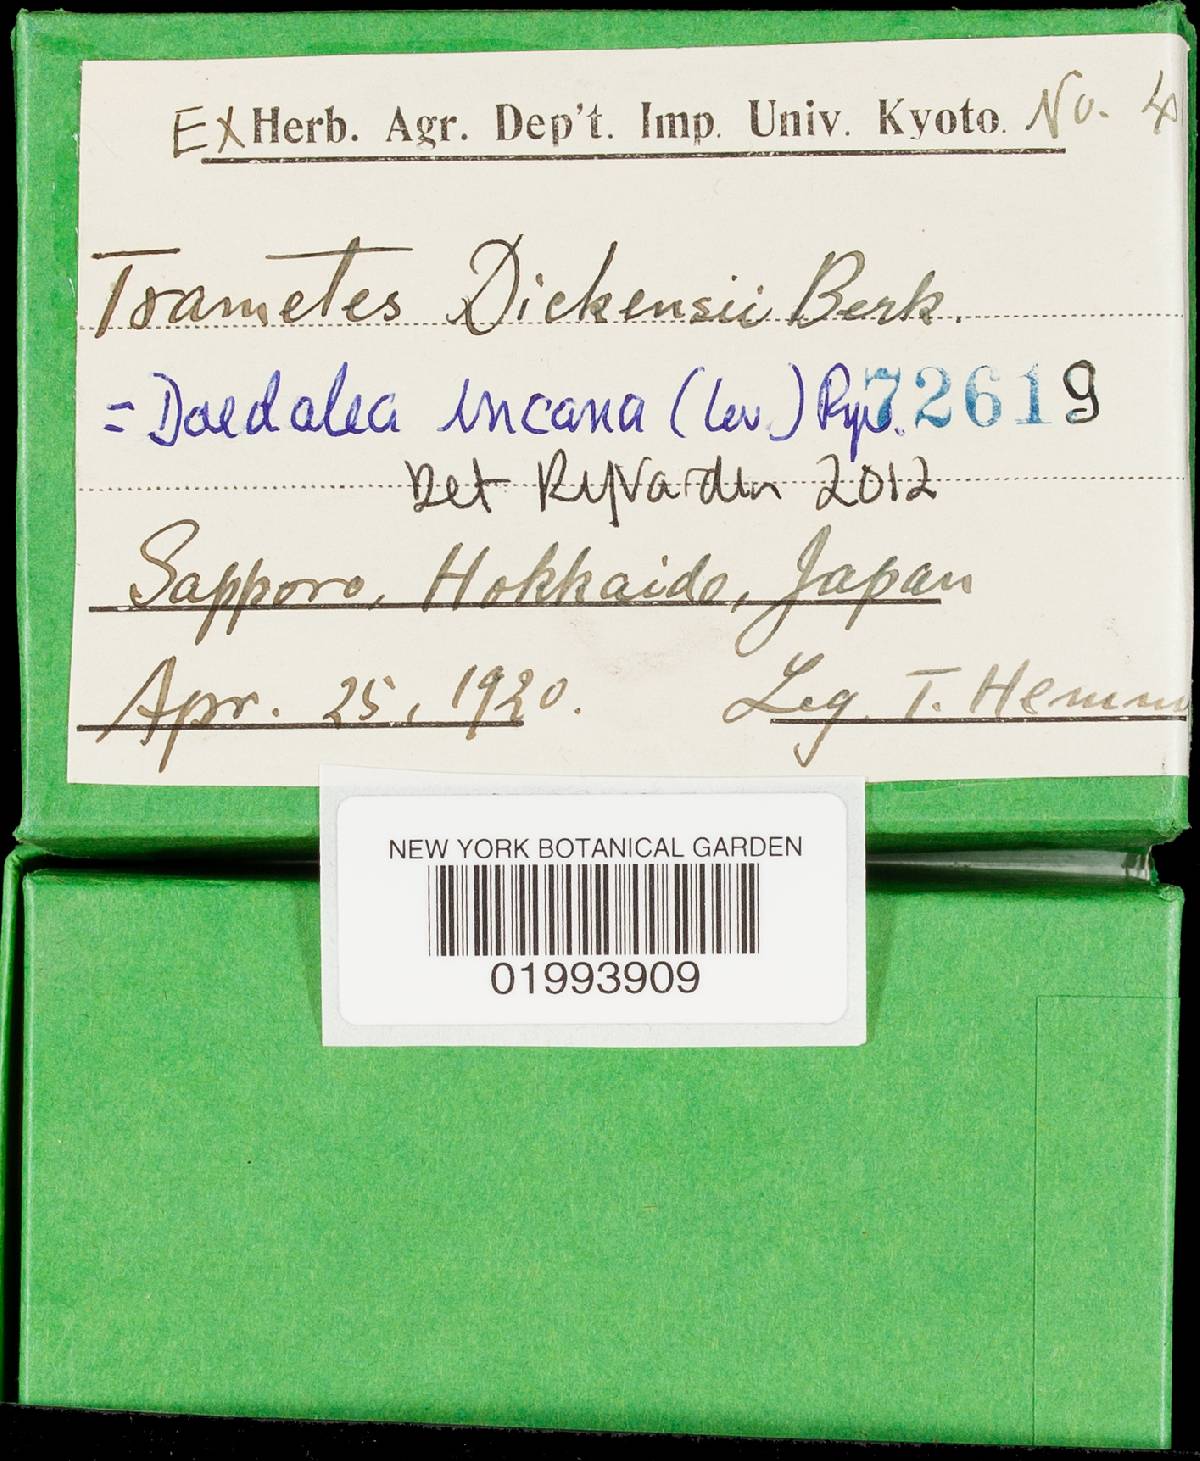 Ex Herb. Agr. Dep't. Imp. Univ. Kyoto. No. 4
Trametes Dickensii Berk.
= Daedalea incana (Lev.) Ryv. 72619
Det Ryvarden 2012
Sapporo, Hokkaido, Japan
Apr. 25, 1920. Leg. T. Hemm
NEW YORK BOTANICAL GARDEN
01993909